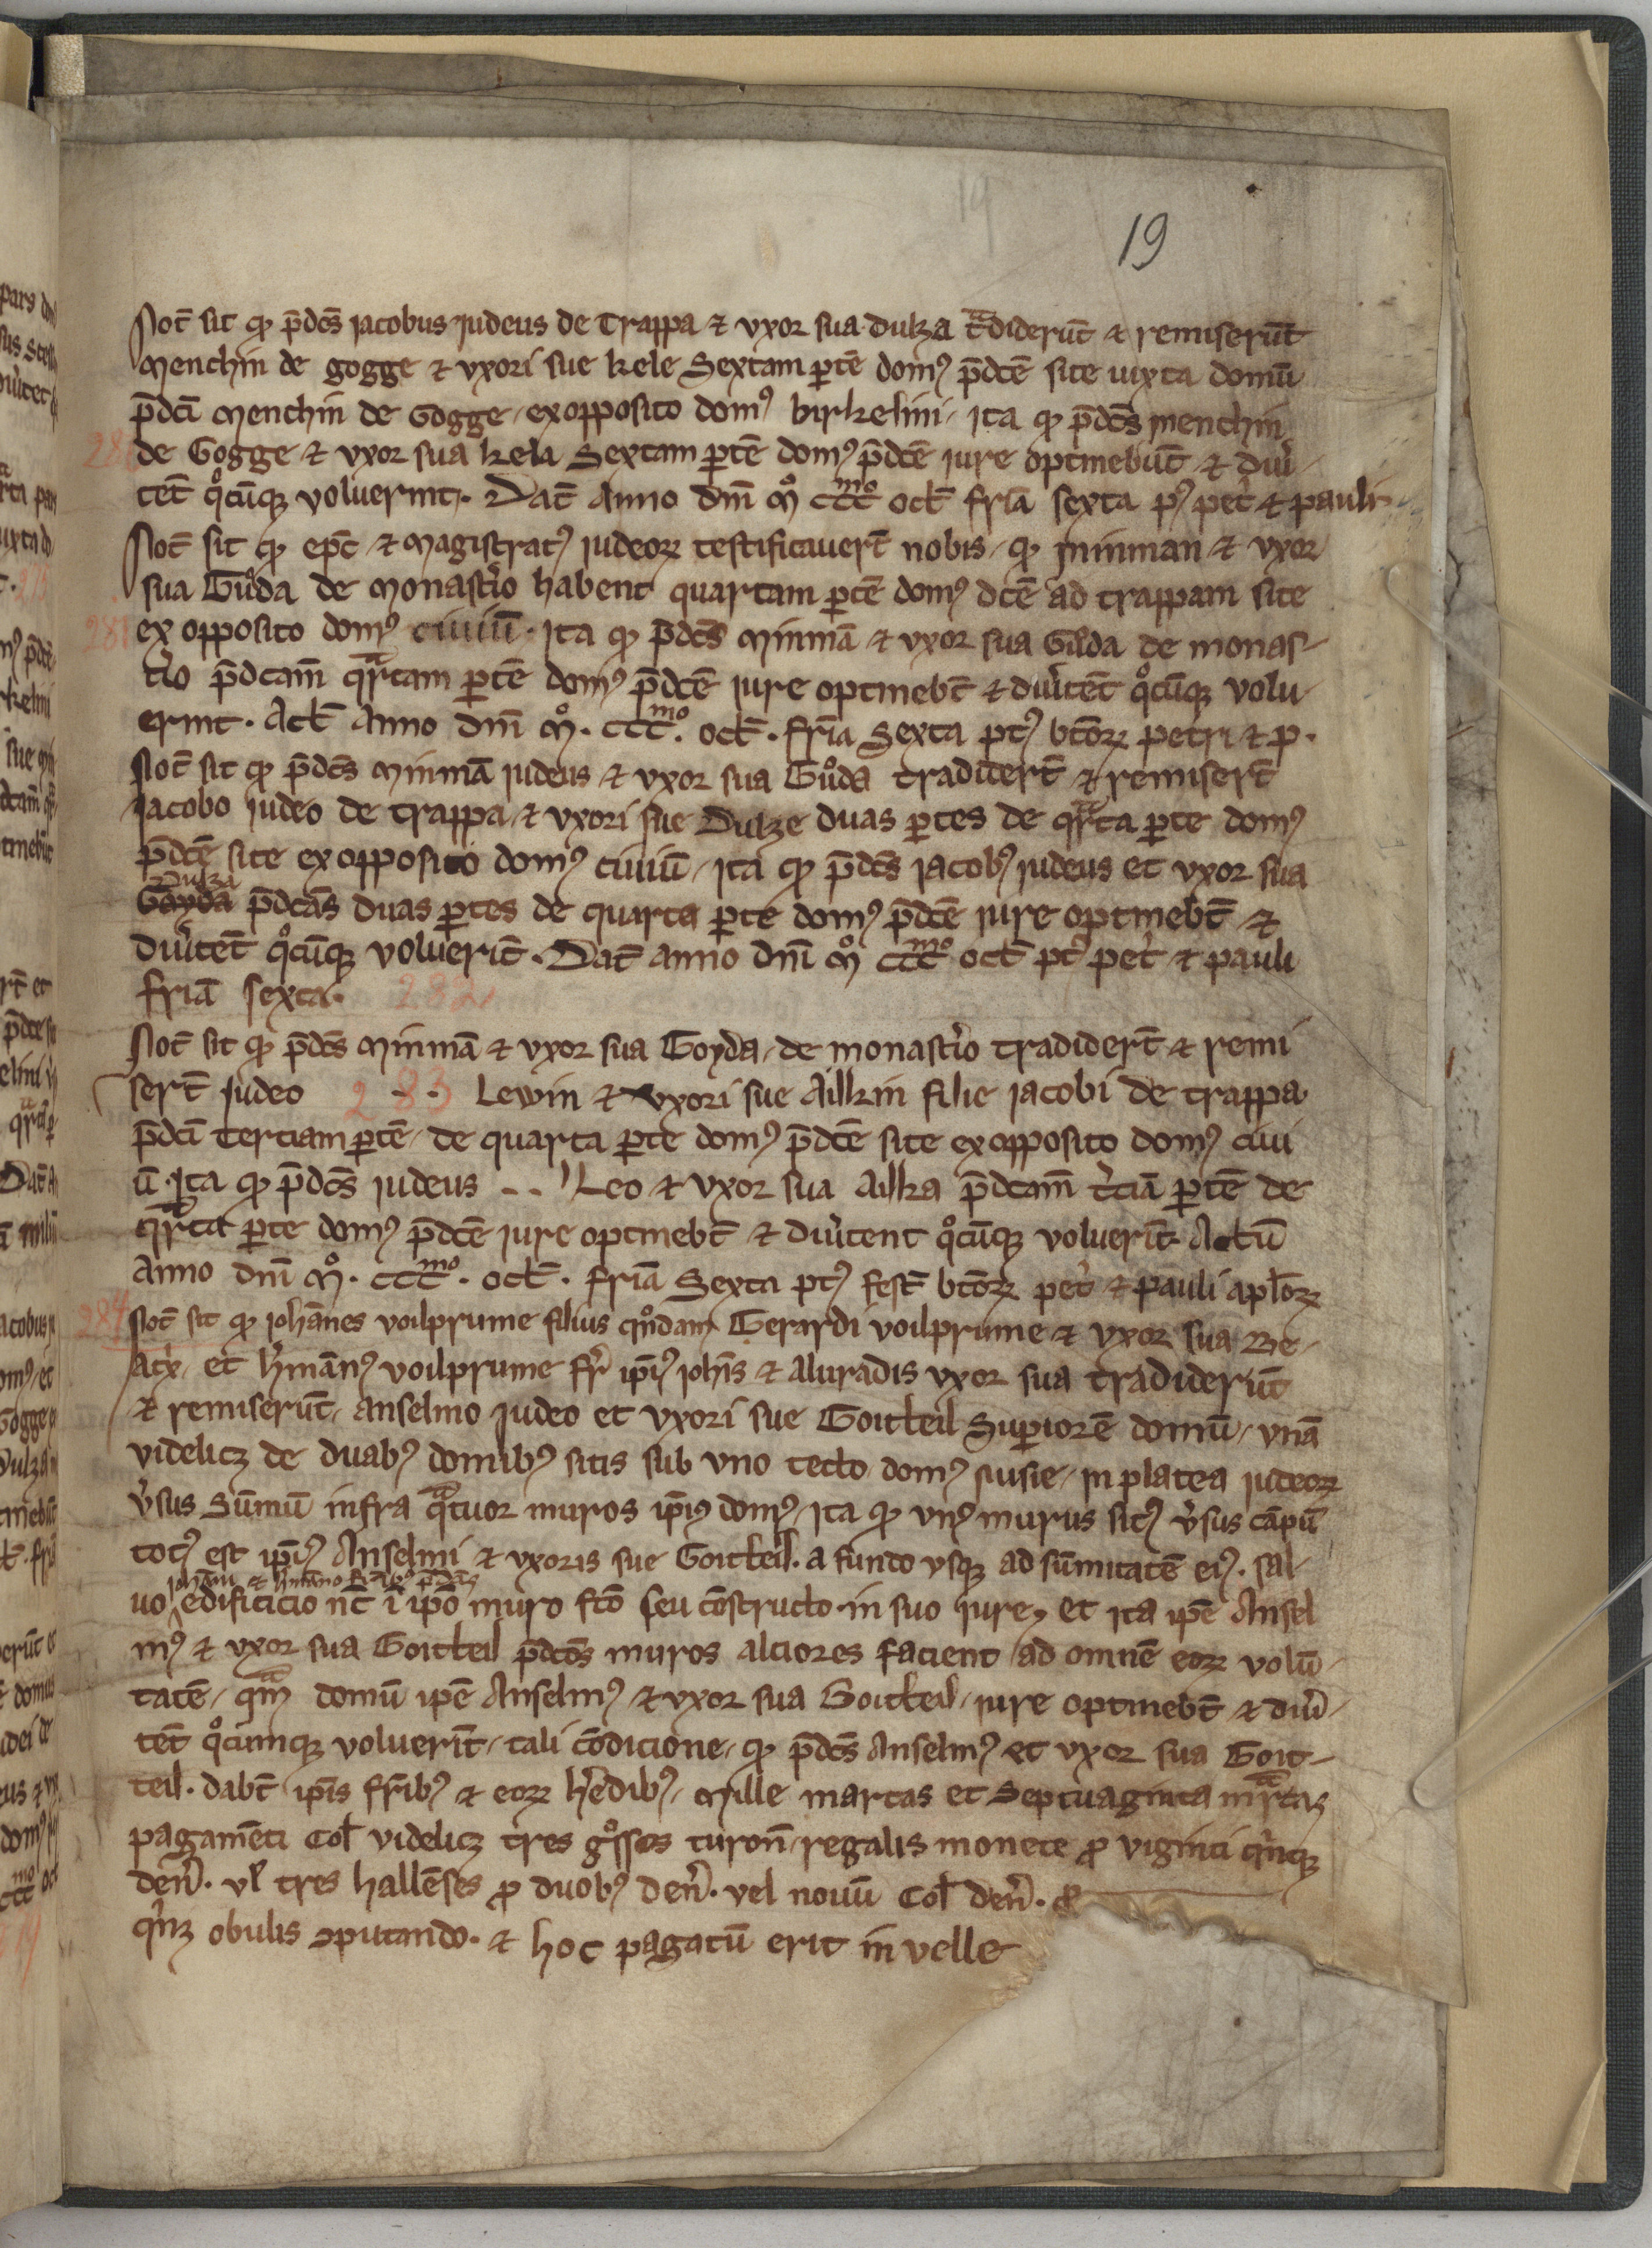 19
Not̄ sit qͦ p̄dc̄s iacobus iudeus de Trappa ⁊ vxor sua dulza tᵃdiderūt ⁊ remiserūt
Menchin de gogge ⁊ vxori sue kele Sextam ꝑtē domꝰ p̄dcē site iuxta domū
p̄dc̄i Menchin de Gogge / ex opposito domꝰ birkelini / ita qͦ p̄dc̄s menchin
280 de Gogge ⁊ vxor sua kela Sextam ꝑtē domꝰ p̄dcē iure optinebūt ⁊ diu̓
tēt qͦcūqꝫ voluerint. Dat̄ Anno dn̄i Mͦ CCCᵐᵒ oct̄ fr̄ia sexta pꝰ pet̓ ⁊ pauli
Not̄ sit qͦ ep̄c ⁊ Magistratꝰ iudeoꝝ testificauer̄t nobis / qͦ Minman ⁊ vxor
sua Gůda de Monastío habent quartam ꝑtē domꝰ dcē ad trappam site
281 ex opposito domꝰ ciuiū. Ita qͦ p̄dc̄s Minmā ⁊ vxor sua Gůda de monas
t̓io p̄dcam̄ qᵃrtam ꝑtē domꝰ p̄dcē iure optinebt̄ ⁊ diu̓tēt qͦcūqꝫ volu
erint. Act̄ Anno dn̄i Mͦ. CCCᵐᵒ. oct̄. fr̄ia Sexta ptꝰ bt̄oꝝ petri ⁊ p.
Not̄ sit qͦ p̄dc̄s Minmā iudeus ⁊ vxor sua Gůda tradider̄t ⁊ remiser̄t
Jacobo iudeo de trappa / ⁊ vxori sue Dulze duas ꝑtes de qᵃrta ꝑte domꝰ
p̄dcē site ex opposito domꝰ ciuiū / ita qͦ p̄dc̄s iacobꝰ iudeus et vxor sua
Dulza
Goyda p̄dcās duas ꝑtes de quarta ꝑte domꝰ p̄dcē iure optinebt̄ ⁊
diu̓tēt qͦcūqꝫ voluerīt. Dat̄ anno dn̄i Mͦ CCCᵐᵒ oct̄ ptꝰ pet̓ ⁊ pauli
fr̄ia sexta. 282
Not̄ sit qͦ p̄dc̄s Minmā ⁊ vxor sua Goyda / de monast̓io tradider̄t ⁊ remi
ser̄t iudeo 283 .. Lewin ⁊ vxori sue Ailkin filie iacobi de trappa
p̄dc̄i Terciam ꝑtē / de quarta ꝑte domꝰ p̄dcē site ex opposito domꝰ ciui
ū. Ita qͦ p̄dc̄s iudeus .. Leo ⁊ vxor sua Ailka p̄dcam̄ t̓ciā ꝑtē de
qᵃrta ꝑte domꝰ p̄dcē iure optinebt̄ ⁊ diu̓tent qͦcūqꝫ voluerīt. Actū
Anno dn̄i Mͦ. CCCᵐᵒ. oct̄. fr̄ia Sexta ptꝰ fest̄ bt̄oꝝ pet̓ ⁊ pauli apl̄oꝝ
284 Not̄ sit qͦ ioħanes voilprume filius qͦndam Gerardi voilprume ⁊ vxor sua Be
atx̓ / et h̓mānꝰ voilprume fr̄ ip̄iꝰ ioħis ⁊ aluradis vxor sua tradiderūt
⁊ remiserūt / anselmo iudeo et vxori sue Goitheil Superiorē domū / vnā
videlicꝫ de duabꝰ domibꝰ sitis sub vno tecto domꝰ susie / in platea iudeoꝝ
v̓sus Sūmū infra qᵃtuor muros ip̄iꝰ domꝰ / ita qͦ vnꝰ murus sitꝰ v̓sus cāpū
totꝰ est ip̄iꝰ Anselmi ⁊ vxoris sue Goitheil. a fundo vsqꝫ ad sūmitatē eiꝰ. sal
ioħani ⁊ h̓māno fr̄ibꝰ p̄dcīs
uo edificicio nc̄ ī ip̄o muro fc̄o seu cōstructo. in suo iure, et ita ip̄e Ansel
mꝰ ⁊ vxor sua Goitheil p̄dcōs muros alciores facient / ad omnē eoꝝ volū
tatē / qᵃm domū ip̄e Anselmꝰ ⁊ vxor sua Goitheil / iure optinebt̄ ⁊ diu̓
tēt qͦcumqꝫ voluerīt / tali cōdicione / qͦ p̄dc̄s Anselmꝰ et vxor sua Goit
heil. dabt̄ ip̄is fr̄ibꝰ ⁊ eoꝝ h̓edibꝰ / Mille marcas et Septuaginta mᵃrcas
pagamēti Col̄ videlicꝫ tres gͦssos turon̄ / regalis monete ꝓ viginti qͥnqꝫ
den̓. vl̓ tres hallēses ꝓ duobꝰ den̓. vel nouū Col̄ den̓. ꝓ
qͥnqꝫ obulis ꝯputando. ⁊ hoc pagatū erit in velle